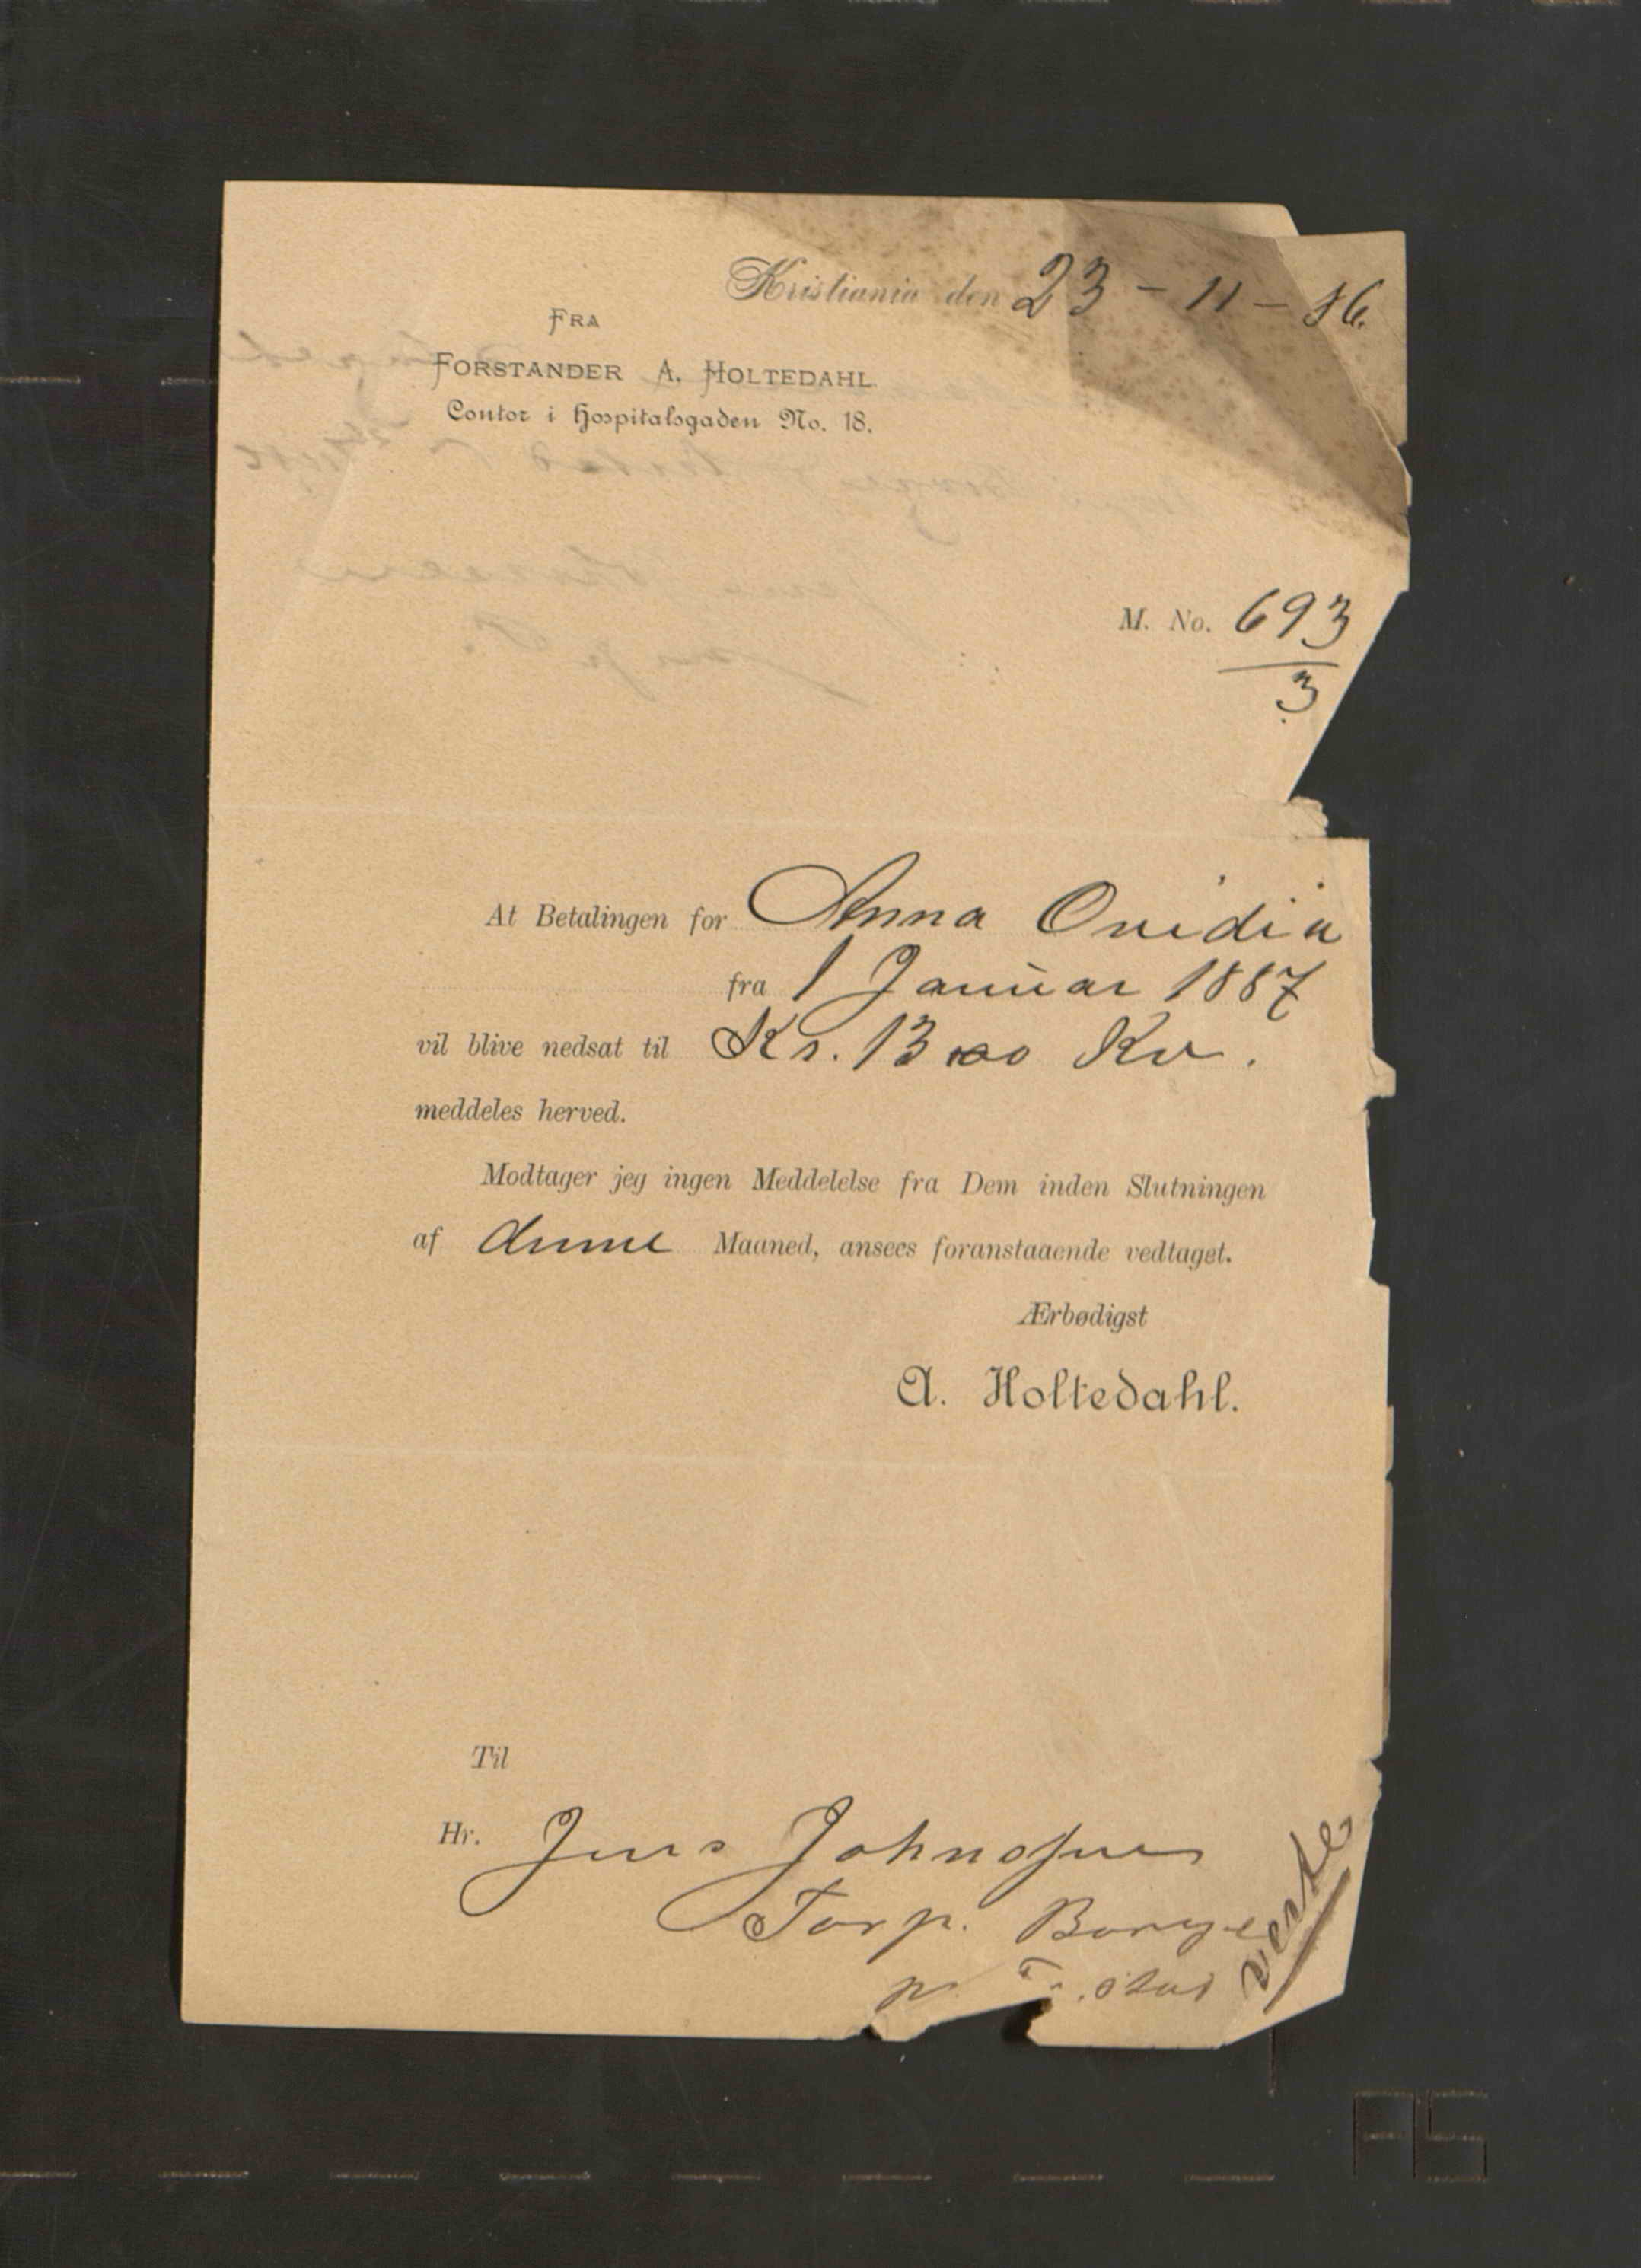 Kristiania den 23 - 11 - 86.
FRA
FORSTANDER A. HOLTEDAHL.
Contor i Hospitalsgaden No. 18.
M. No. 693
3
At Betalingen for Anna Ovidia
fra 1 Januar 1887
vil blive nedsat til Kr. 13 00 Kv.
meddeles herved.
Modtager jeg ingen Meddelelse fra Dem inden Slutningen
af denne Maaned, ansees foranstaaende vedtaget.
Ærbødigst
A. Holtedahl.
Til
Hr. Jens Johnsen
Torp. Borge
verte